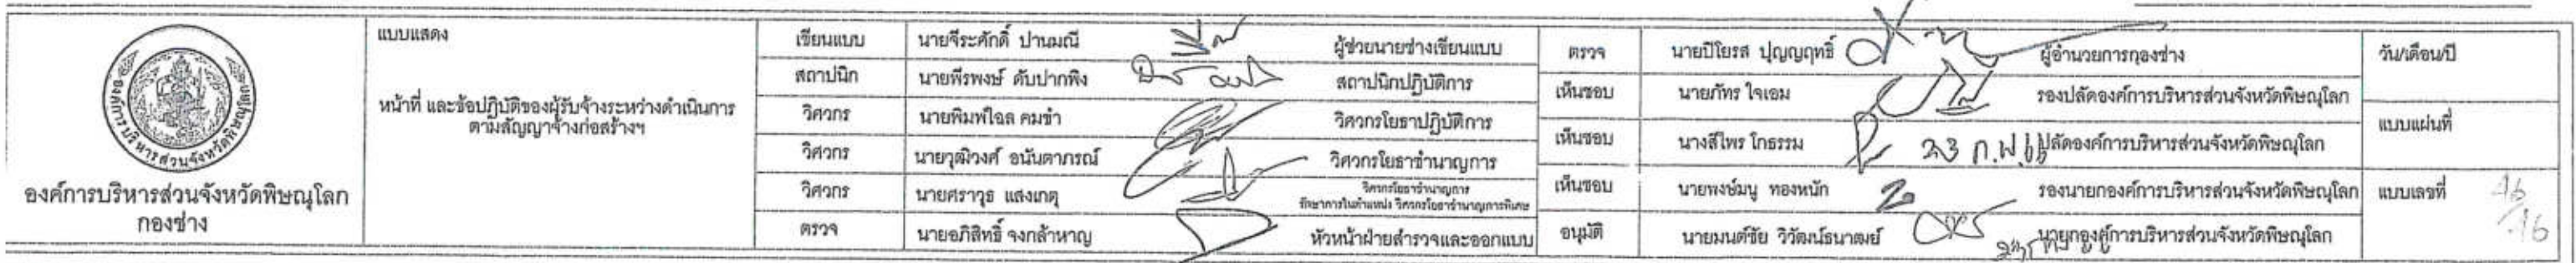 องค์การบริหารส่วนจังหวัดพิษณุโลก
องค์การบริหารส่วนจังหวัดพิษณุโลก
กองช่าง
แบบแสดง
หน้าที่ และข้อปฏิบัติของผู้รับจ้างระหว่างดำเนินการ
ตามสัญญาจ้างก่อสร้างฯ
เขียนแบบ นายจีระศักดิ์ ปานมณี ผู้ช่วยนายช่างเขียนแบบ
สถาปนิก นายพีรพงษ์ ดับปากพิง สถาปนิกปฏิบัติการ
วิศวกร นายพิมพ์ใจล คมขำ วิศวกรโยธาปฏิบัติการ
วิศวกร นายวุฒิวงศ์ อนันตาภรณ์ วิศวกรโยธาชำนาญการ
วิศวกร นายศราวุธ แสงเกตุ วิศวกรโยธาชำนาญการ
รักษาการในตำแหน่ง วิศวกรโยธาชำนาญการพิเศษ
ตรวจ นายอภิสิทธิ์ จงกล้าหาญ หัวหน้าฝ่ายสำรวจและออกแบบ
ตรวจ นายปิโยรส ปุญญฤทธิ์ ผู้อำนวยการกองช่าง
เห็นชอบ นายภัทร ใจเอม รองปลัดองค์การบริหารส่วนจังหวัดพิษณุโลก
เห็นชอบ นางสีไพร โกธรรม 23 ก.พ. ปลัดองค์การบริหารส่วนจังหวัดพิษณุโลก
เห็นชอบ นายพงษ์มนู ทองหนัก รองนายกองค์การบริหารส่วนจังหวัดพิษณุโลก
อนุมัติ นายมนต์ชัย วิวัฒน์ธนาฒย์ นายกองค์การบริหารส่วนจังหวัดพิษณุโลก
วัน/เดือน/ปี
แบบแผ่นที่
แบบเลขที่ 46
46